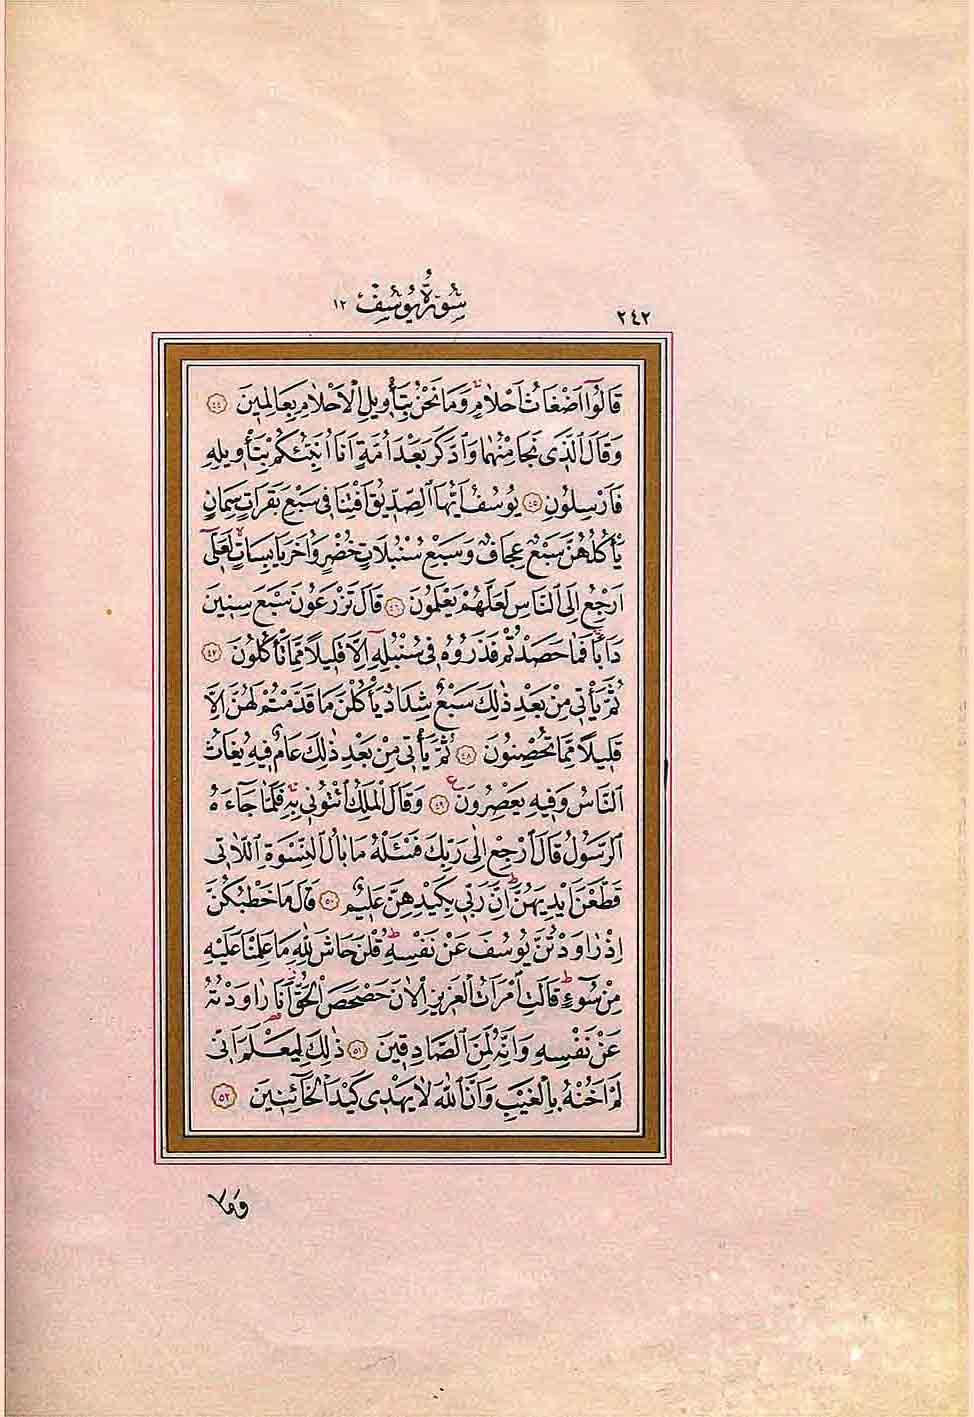 ٢٤٢
سُورَةُ يُوسُفَ ١٢
قَالُٓوا اَضْغَاثُ اَحْلَامٍۚ وَمَا نَحْنُ بِتَأْوٖيلِ الْاَحْلَامِ بِعَالِمٖينَ ٤٤
وَقَالَ الَّذٖى نَجَا مِنْهُمَا وَادَّكَرَ بَعْدَ اُمَّةٍ اَنَا اُنَبِّئُكُمْ بِتَأْوٖيلِهٖ
فَاَرْسِلُونِ ٤٥ يُوسُفُ اَيُّهَا الصِّدّٖيقُ اَفْتِنَا فٖى سَبْعِ بَقَرَاتٍ سِمَانٍ
يَأْكُلُهُنَّ سَبْعٌ عِجَافٌ وَسَبْعِ سُنْبُلَاتٍ خُضْرٍ وَاُخَرَ يَابِسَاتٍۙ لَعَلّٖٓى
اَرْجِعُ اِلَى النَّاسِ لَعَلَّهُمْ يَعْلَمُونَ ٤٦ قَالَ تَزْرَعُونَ سَبْعَ سِنٖينَ
دَاَبًاۚ فَمَا حَصَدْتُمْ فَذَرُوهُ فٖى سُنْبُلِهٖٓ اِلَّا قَلٖيلًا مِمَّا تَأْكُلُونَ ٤٧
ثُمَّ يَأْتٖى مِنْ بَعْدِ ذٰلِكَ سَبْعٌ شِدَادٌ يَأْكُلْنَ مَا قَدَّمْتُمْ لَهُنَّ اِلَّا
قَلٖيلًا مِمَّا تُحْصِنُونَ ٤٨ ثُمَّ يَأْتٖى مِنْ بَعْدِ ذٰلِكَ عَامٌ فٖيهِ يُغَاثُ
النَّاسُ وَفٖيهِ يَعْصِرُونَ ع ٤٩ وَقَالَ الْمَلِكُ ائْتُونٖى بِهٖۚ فَلَمَّا جَٓاءَهُ
الرَّسُولُ قَالَ ارْجِعْ اِلٰى رَبِّكَ فَسْـَٔلْهُ مَا بَالُ النِّسْوَةِ الّٰتٖى
قَطَّعْنَ اَيْدِيَهُنَّۜ اِنَّ رَبّٖى بِكَيْدِهِنَّ عَلٖيمٌ ٥٠ قَالَ مَا خَطْبُكُنَّ
اِذْ رَاوَدْتُنَّ يُوسُفَ عَنْ نَفْسِهٖۜ قُلْنَ حَاشَ لِلّٰهِ مَا عَلِمْنَا عَلَيْهِ
مِنْ سُٓوءٍۜ قَالَتِ امْرَاَتُ الْعَزٖيزِ الْـٰٔنَ حَصْحَصَ الْحَقُّۘ اَنَا رَاوَدْتُهُ
عَنْ نَفْسِهٖ وَاِنَّهُ لَمِنَ الصَّادِقٖينَ ٥١ ذٰلِكَ لِيَعْلَمَ اَنّٖى
لَمْ اَخُنْهُ بِالْغَيْبِ وَاَنَّ اللّٰهَ لَا يَهْدٖى كَيْدَ الْخَٓائِنٖينَ ٥٢
وَمَا